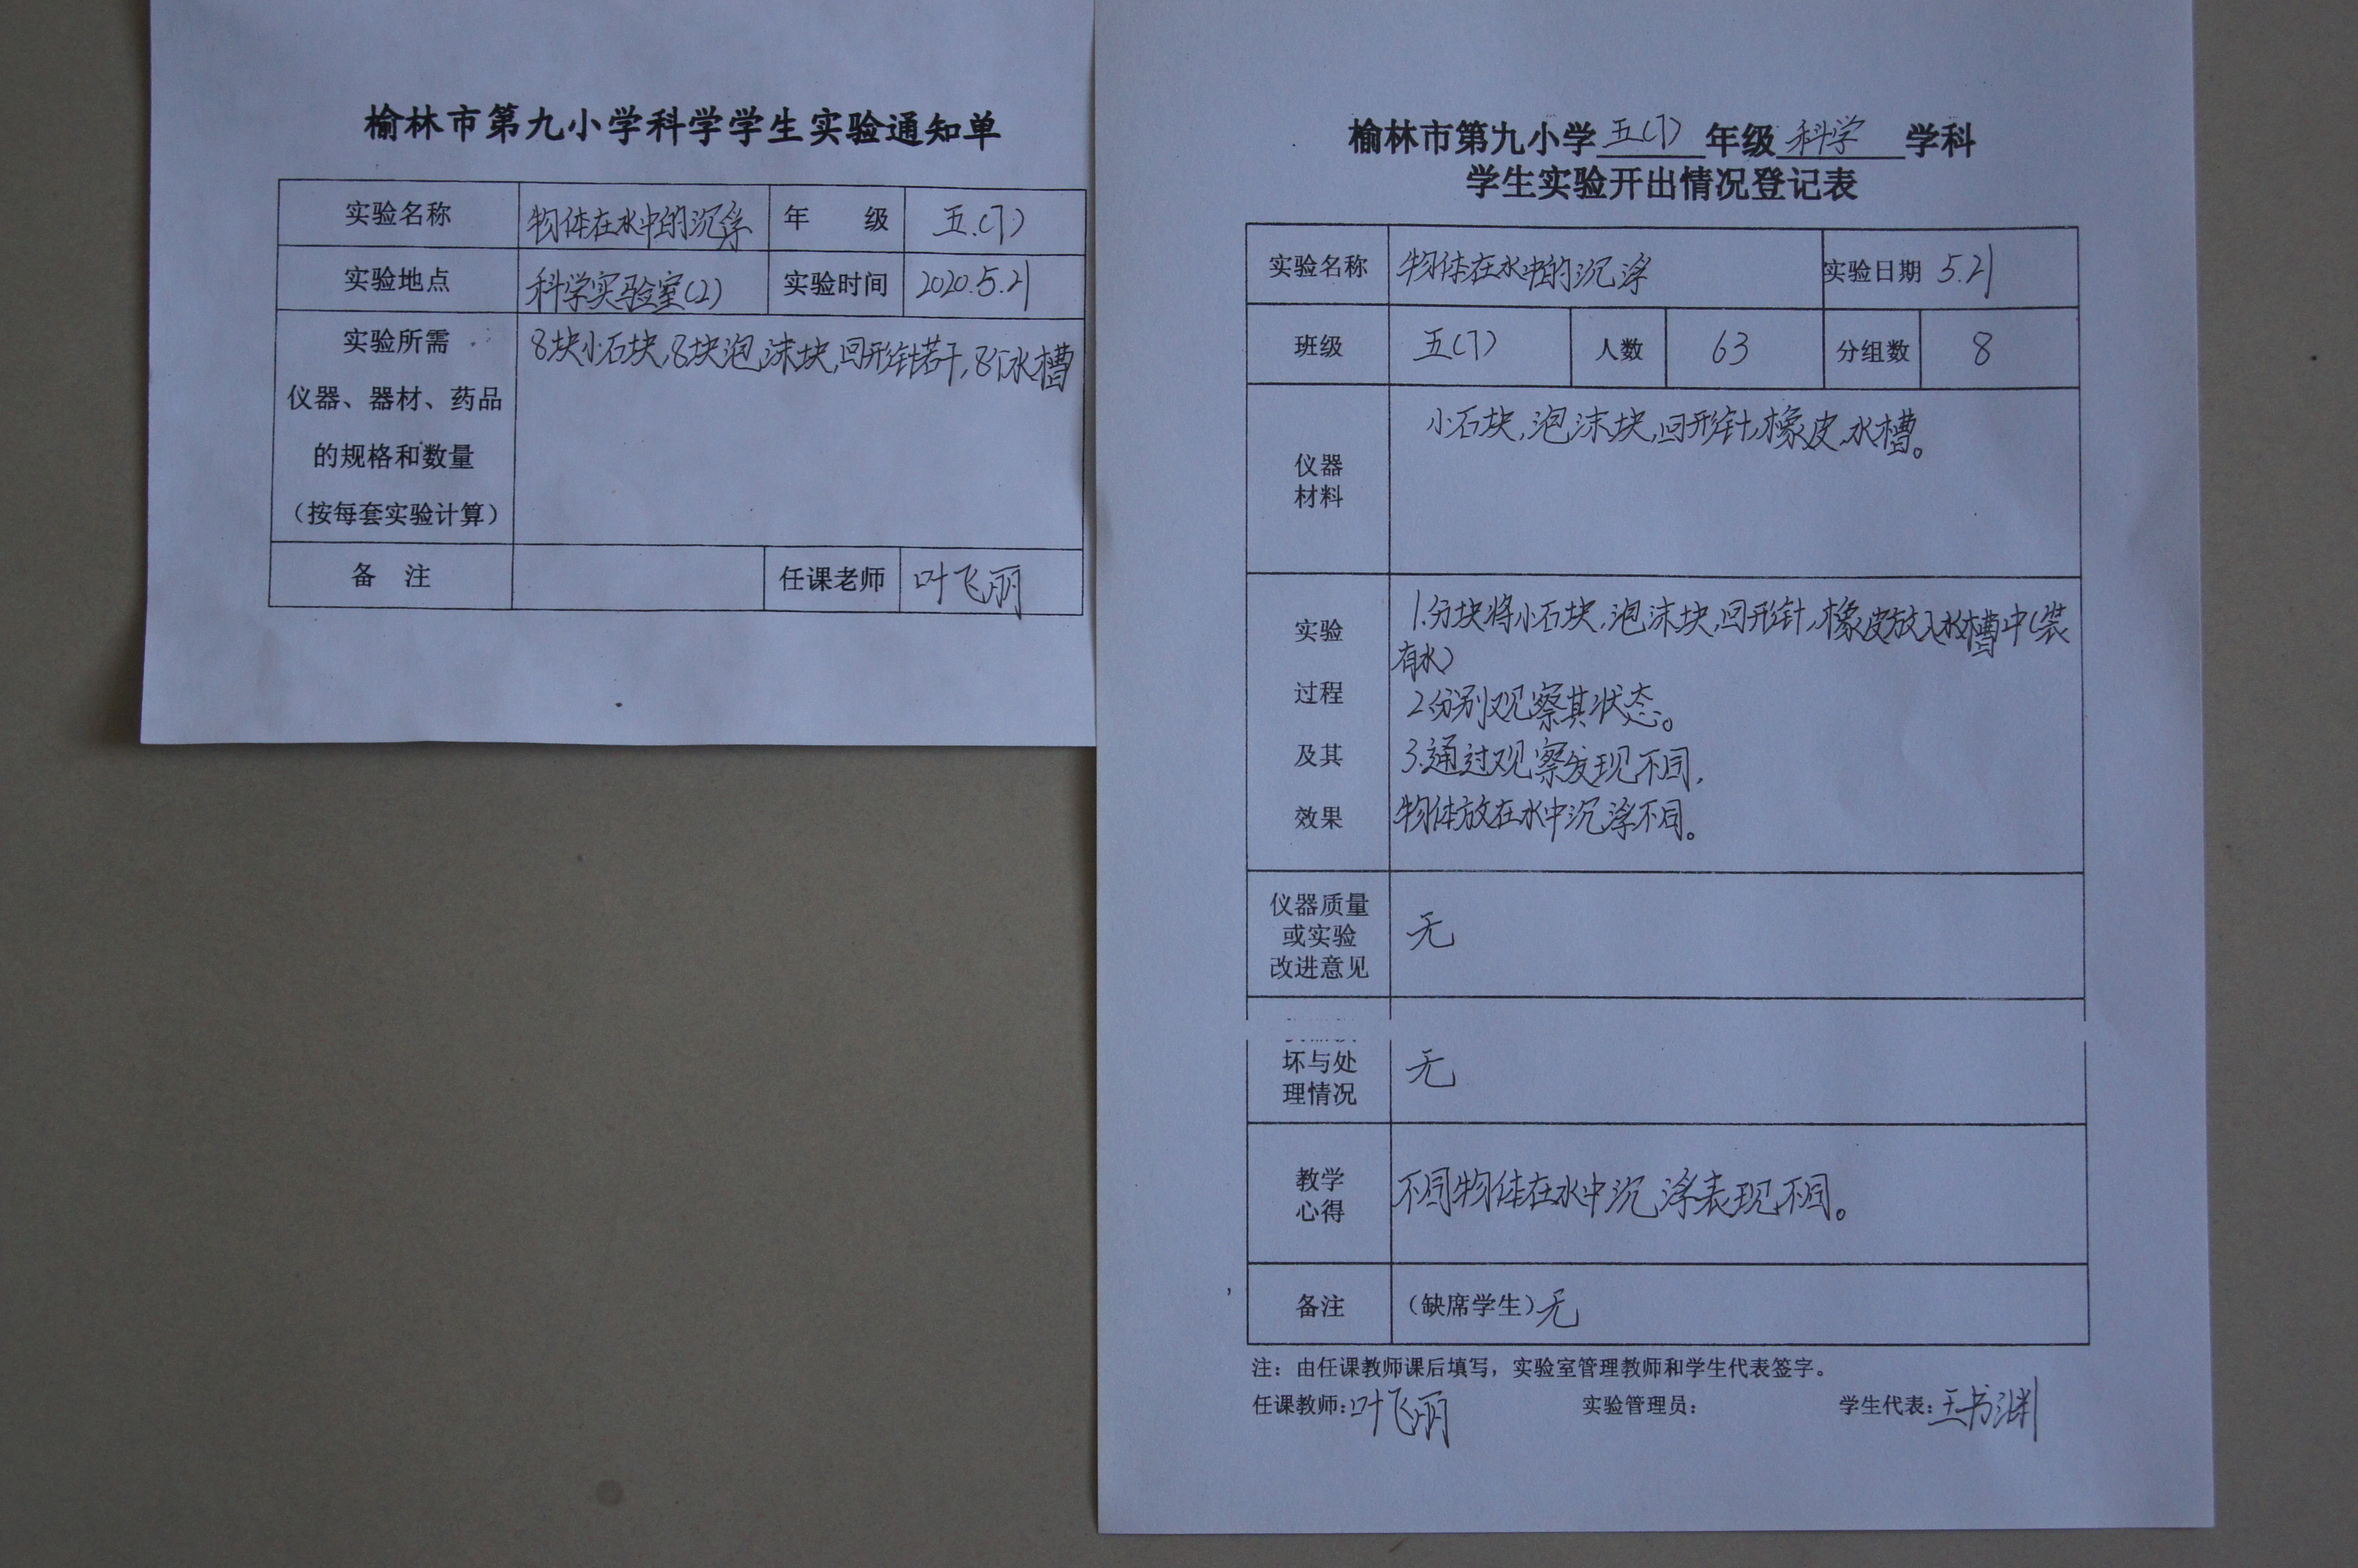 榆林市第九小学科学学生实验通知单
实验名称 物体在水中的沉浮 年 级 五(7)
实验地点 科学实验室(2) 实验时间 2020.5.21
实验所需
仪器、器材、药品
的规格和数量
(按每套实验计算)
8块小石块,8块泡沫块,回形针若干,8个水槽
备 注 任课老师 叶飞丽
榆林市第九小学五(7)年级科学学科
学生实验开出情况登记表
实验名称 物体在水中的沉浮 实验日期 5.21
班级 五(7) 人数 63 分组数 8
仪器
材料
小石块,泡沫块,回形针,橡皮,水槽。
实验
过程
及其
效果
1.分块将小石块,泡沫块,回形针,橡皮放入水槽中(装
有水)
2.分别观察其状态。
3.通过观察发现不同,
物体放在水中沉浮不同。
仪器质量
或实验
改进意见
无
坏与处
理情况
无
教学
心得
不同物体在水中沉浮表现不同。
备注 (缺席学生)无
注:由任课教师课后填写,实验室管理教师和学生代表签字。
任课教师:叶飞丽 实验管理员: 学生代表:王书渊